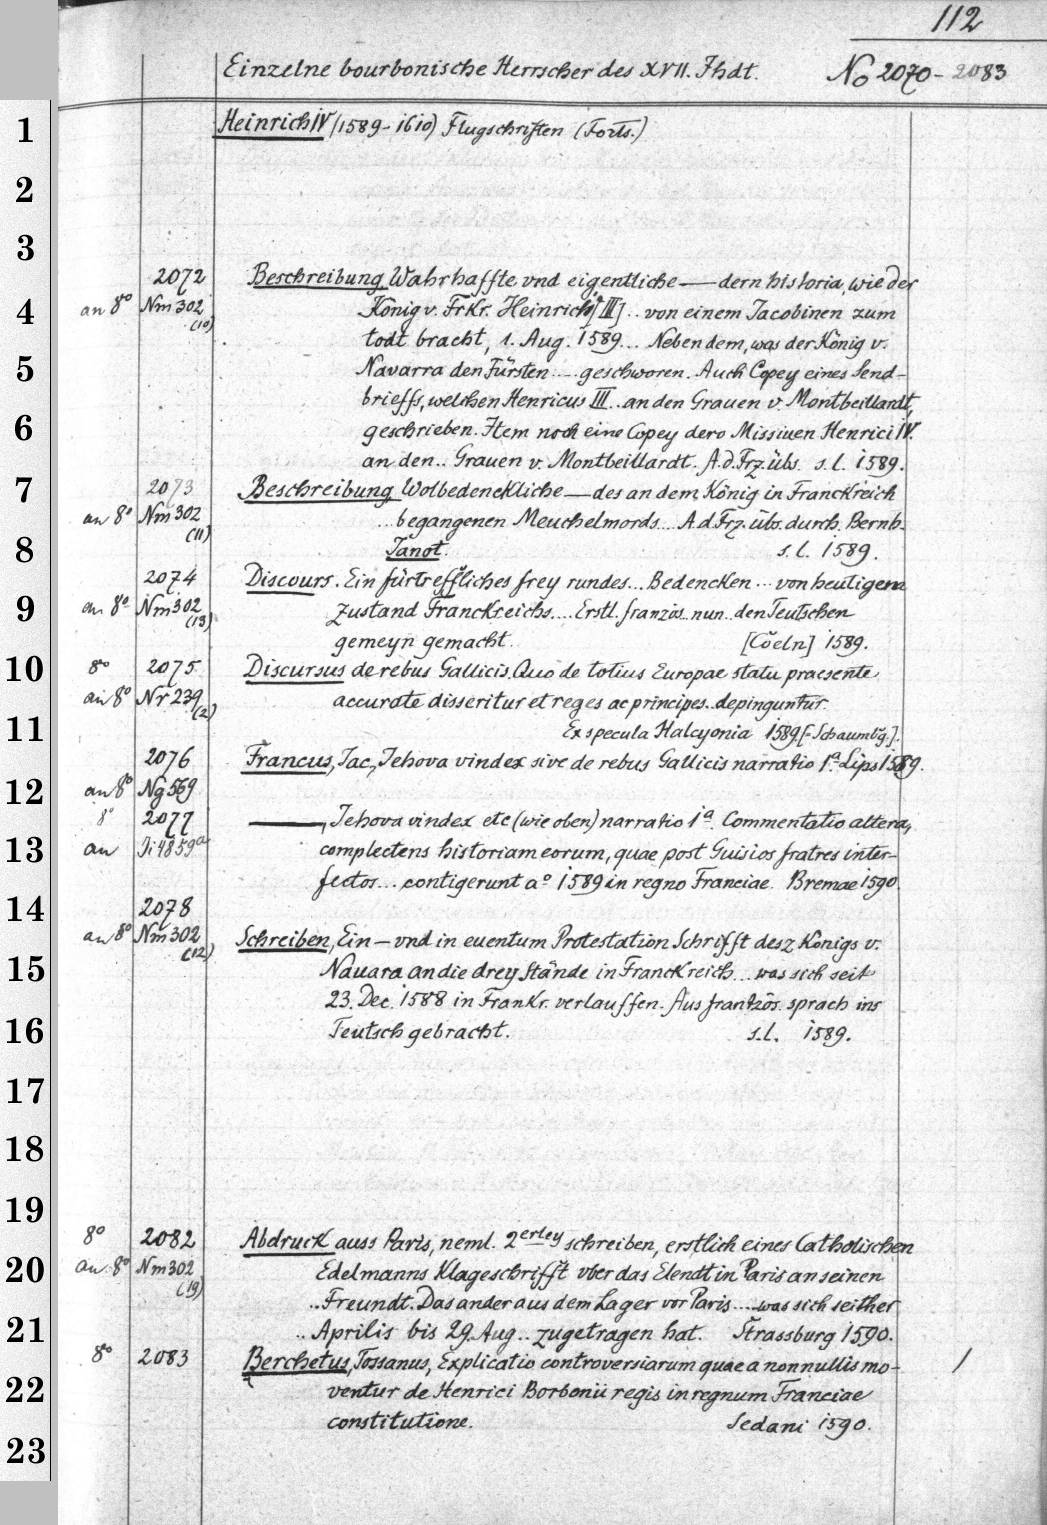 112
Einzelne bourbonische Herrscher des XVII. Jhdt. No 2070-2083
1 Heinrich IV (1589-1610) Flugschriften (Forts.)
2
3
2072 Beschreibung Wahrhaffte vnd eigentliche — dern historia, wie der
4 an 8° Nm 302 König v. Fr Kr. Heinrich [III] .. von einem Jacobinen zum
(10) todt bracht, 1. Aug. 1589... Neben dem, was der König v.
5 Navarra den Fürsten .... geschworen. Auch Copey eines Send-
brieffs, welchen Henricus III .. an den Grauen v. Montbeillardt,
6 geschrieben. Item noch eine Copey dero Missiuen Henrici IV.
an den .. Grauen v. Montbeillardt. A. d. Frz. übs. s. l. 1589.
7 2073 Beschreibung Wolbedenckliche — des an dem König in Franckreich
an 8° Nm 302 ... begangenen Meuchelmords... A. d. Frz. übs. durch Bernh.
8 (11) Janot. s. l. 1589.
2074 Discours. Ein fürtreffliches frey rundes... Bedencken ... von heutigem
9 an 8° Nm 302 zustand Franckreichs.... Erstl. französ. nun .. den Teutschen
(13) gemeyn gemacht. [Cöeln] 1589.
10 8° 2075 Discursus de rebus Gallicis. Quo de totius Europae statu praesente
an 8° Nr 239 accurate disseritur et reges ac principes.. depinguntur.
11 (2) Ex specula Halcyonia 1589. [= Schaumbg.].
2076 Francus, Jac., Jehova vindex sive de rebus Gallicis narratio 1.a Lips 1589.
12 an 8° Ng 569
8° 2077 —, Jehova vindex etc (wie oben) narratio 1a. Commentatio altera,
13 an Ji 4859a complectens historiam eorum, quae post Guisios fratres inter-
fectos... contigerunt a° 1589 in regno Franciae. Bremae 1590.
14 2078
an 8° Nm 302 Schreiben, Ein — vnd in euentum Protestation Schrifft desz Königs v.
15 (12) Nauara an die drey Stände in Franckreich... was sich seit
23. Dec. 1588 in Frankr. verlauffen. Aus frantzös. sprach ins
16 Teutsch gebracht. s. l. 1589.
17
18
19
8° 2082 Abdruck auss Paris, neml. 2erley schreiben, erstlich eines Catholischen
20 an 8° Nm 302 Edelmanns Klageschrifft vber das Elendt in Paris an seinen
(19) .. Freundt. Das ander aus dem Lager vor Paris .... was sich seither
21 .. Aprilis bis 29. Aug .. zugetragen hat. Strassburg 1590.
8° 2083 Berchetus, Tossanus, Explicatio controversiarum quae a nonnullis mo- /
22 ventur de Henrici Borbonii regis in regnum Franciae
constitutione. Sedani 1590.
23